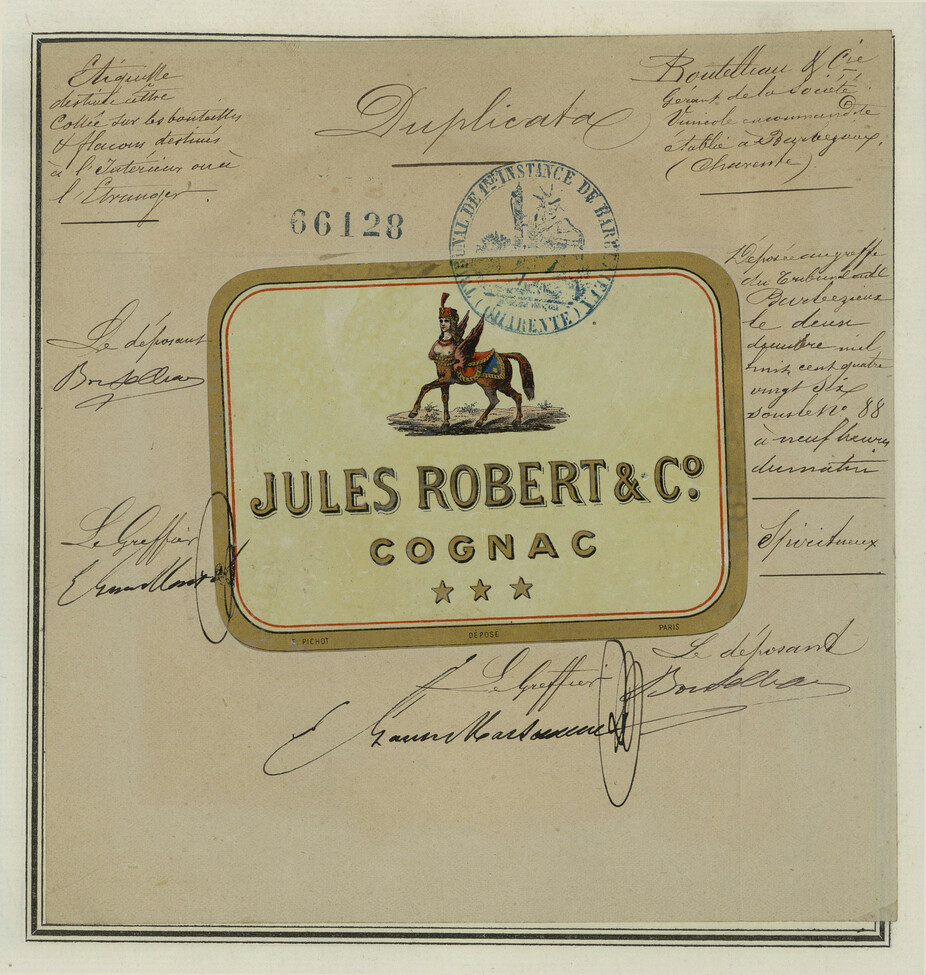 Etiquette
destinée à être
Collée sur les bouteilles
& flacons destinés
à l'Intérieur ou à
l'Etranger.
Duplicata
& Cie
Gérant de la Société
Vinicole en commandite
établie à Barbezieux.
(Charente)
66128
TRIBUNAL DE 1RE INSTANCE DE BARBEZIEUX
(CHARENTE)
Déposée au greffe
du Tribunal de
Barbezieux
le deux
décembre mil
huit cent quatre
vingt six
sous le No 88
à neuf heures
du matin
Spiritueux
Le déposant
Le Greffier
JULES ROBERT & Co.
COGNAC
PICHOT
DÉPOSÉ
PARIS
Le Greffier
Le déposant